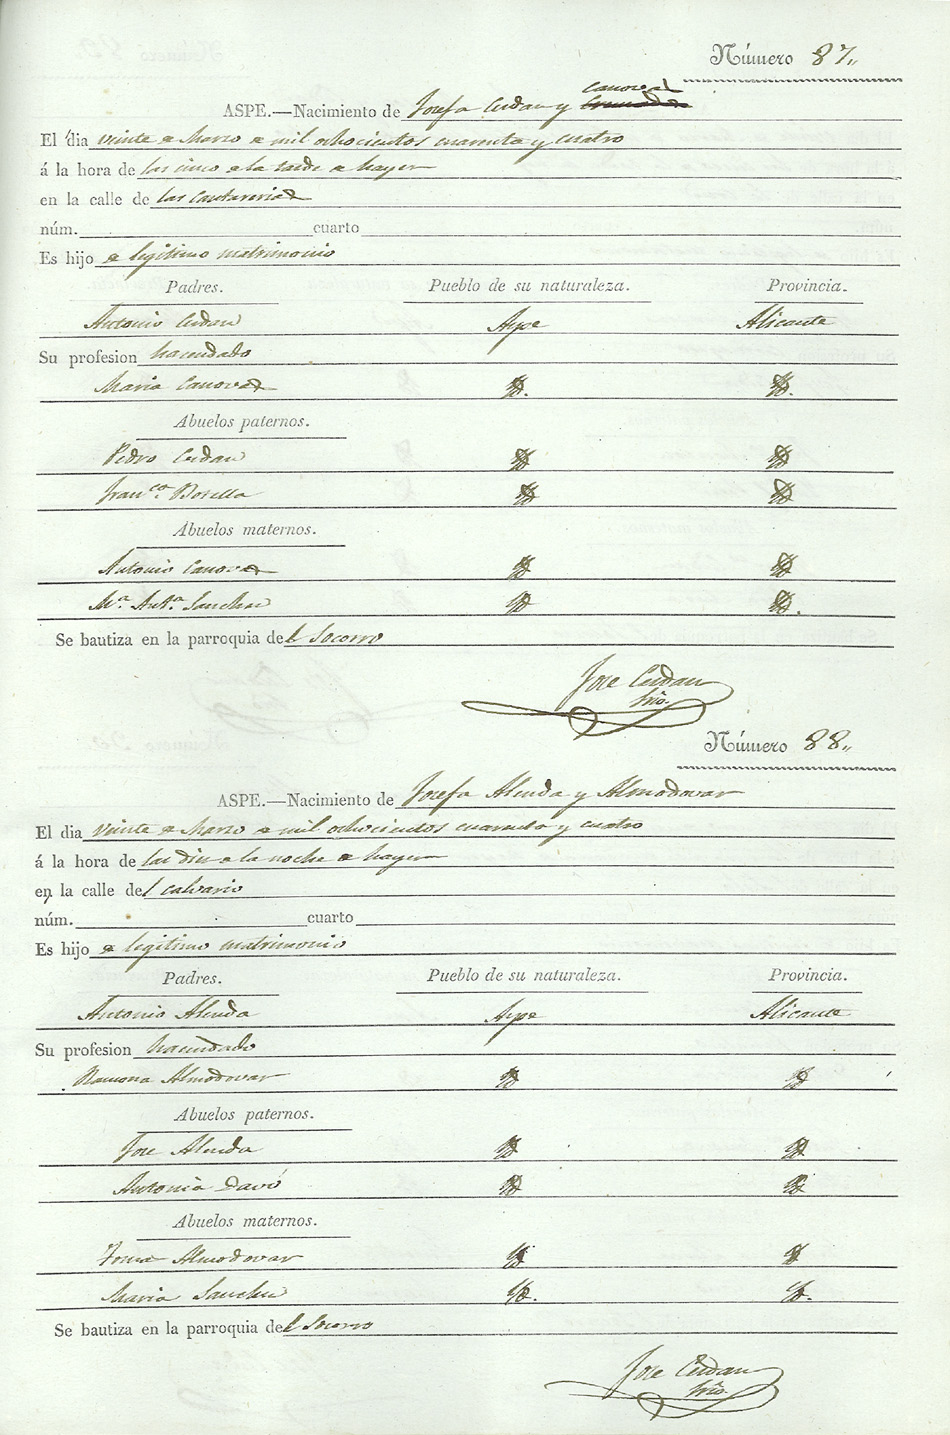 Número 87,,
Canovas
ASPE.—Nacimiento de Josefa Cerdan y
El dia veinte de Marzo de mil ochocientos cuarenta y cuatro
á la hora de las cinco de la tarde de hayer
en la calle de las Cantarerias
núm. cuarto
Es hijo de legitimo matrimonio
Padres. Pueblo de su naturaleza. Provincia.
Antonio Cerdan Aspe Alicante
Su profesion hacendado
Maria Canovas
Abuelos paternos.
Pedro Cerdan
Franca. Botella
Abuelos maternos.
Antonio Canovas
Ma. Anta. Sanchez
Se bautiza en la parroquia del Socorro
Jose Cerdan
Srio.
Número 88,,
ASPE.—Nacimiento de Josefa Alenda y Almodovar
El dia veinte de Marzo de mil ochocientos cuarenta y cuatro
á la hora de las diez de la noche de hayer
en la calle del calvario
núm. cuarto
Es hijo de legitimo matrimonio
Padres. Pueblo de su naturaleza. Provincia.
Antonio Alenda Aspe Alicante
Su profesion hacendado
Ramona Almodovar
Abuelos paternos.
Jose Alenda
Antonia Davó
Abuelos maternos.
Tomas Almodovar
Maria Sanchez
Se bautiza en la parroquia del Socorro
Jose Cerdan
Srio.